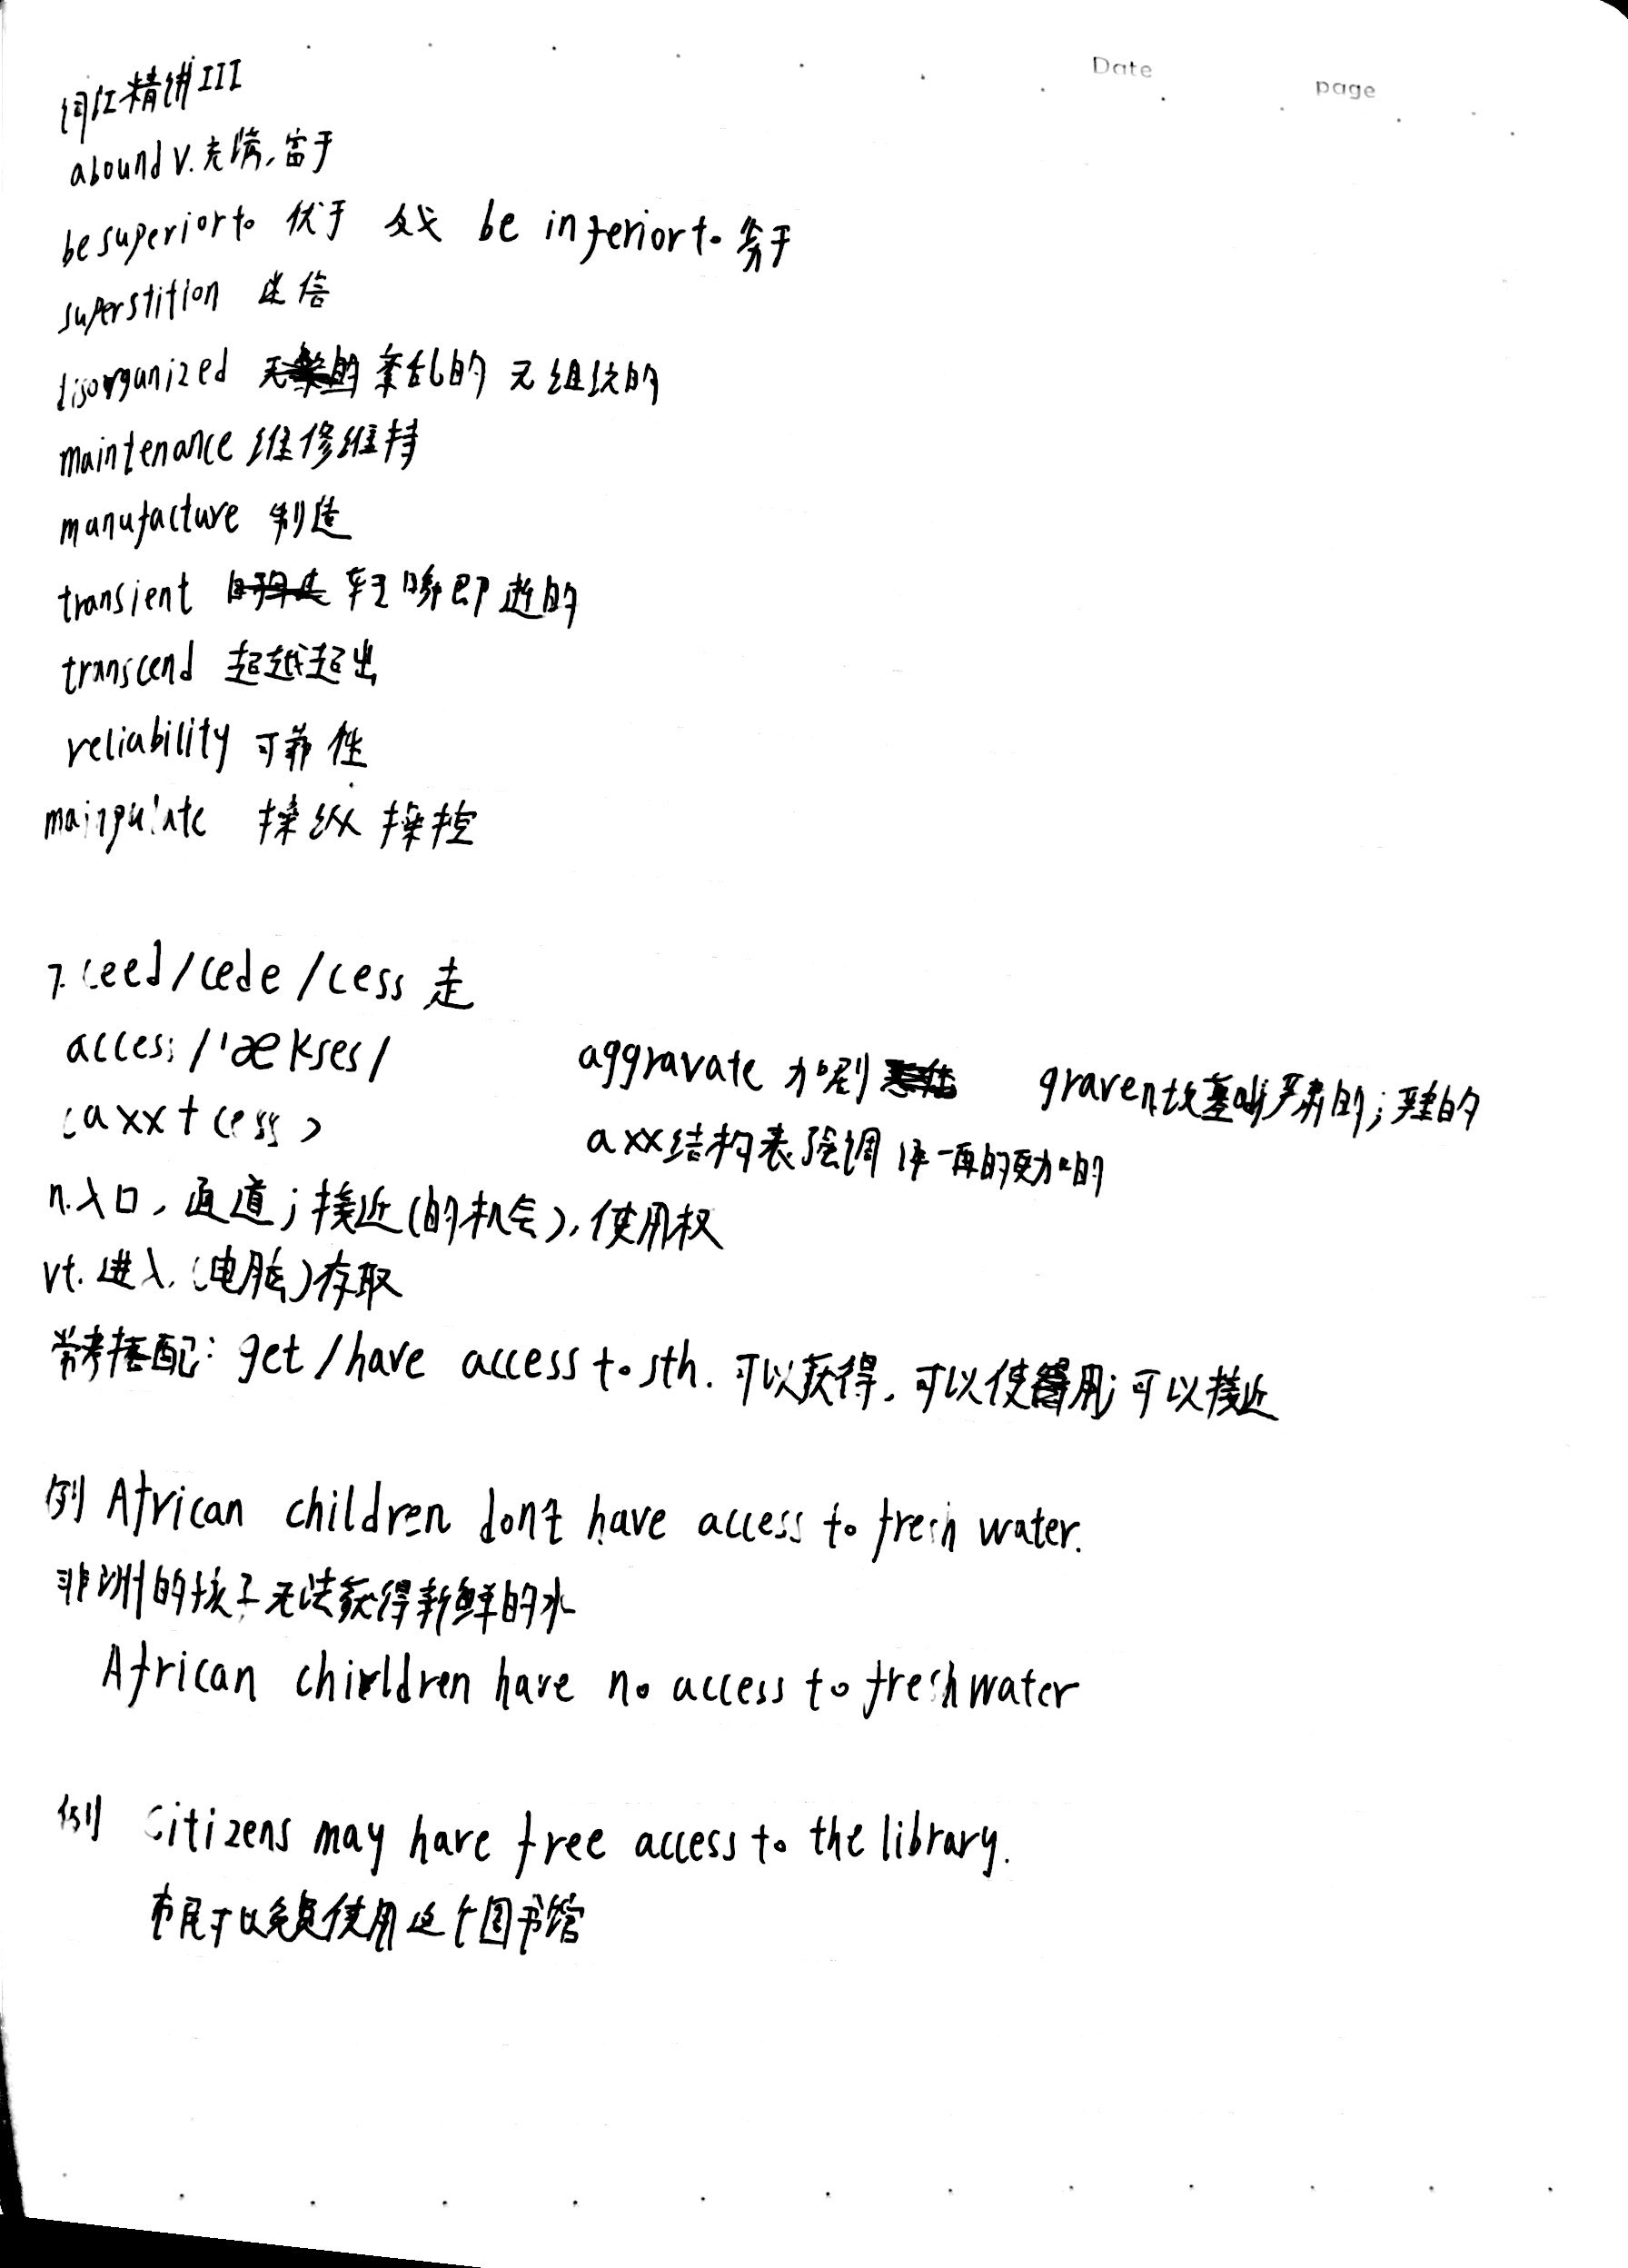 Date
page
词汇精讲III
abound v.充满,富于
be superior to 优于 反义 be inferior to 劣于
superstition 迷信
disorganized 紊乱的 无组织的
maintenance 维修维持
manufacture 制造
transient 转瞬即逝的
transcend 超越超出
reliability 可靠性
mainpulate 操纵 操控
7.ceed/cede/cess 走
access /'ækses/
(axx+cess)
aggravate 加剧 grave n.坟墓 严肃的;严重的
axx结构表强调 一再的更加的
n.入口,通道;接近(的机会),使用权
vt.进入,(电脑)存取
常考搭配: get/have access to sth. 可以获得,可以使用;可以接近
例 African children don't have access to fresh water.
非洲的孩子无法获得新鲜的水
African children have no access to fresh water
例 Citizens may have free access to the library.
市民可以免费使用这个图书馆